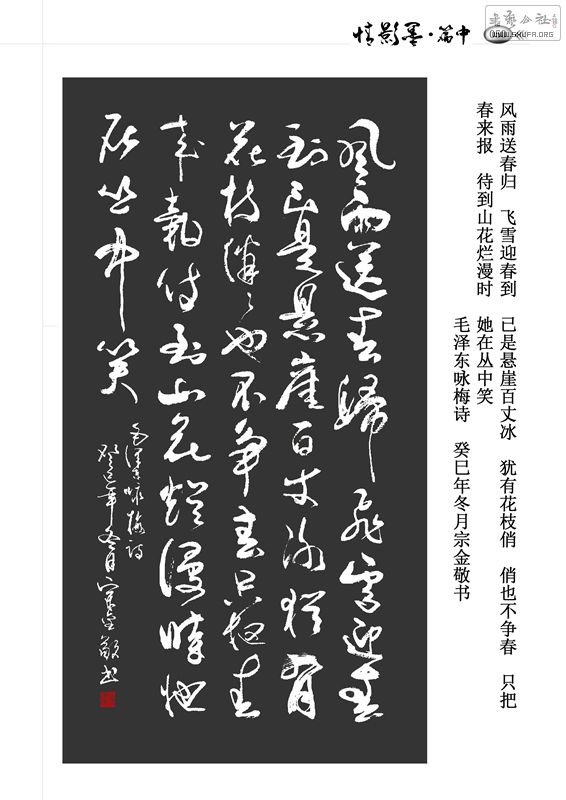 情影墨·篇中
书艺公社
WWW.SHUFA.ORG
風雨送春歸飛雪迎春
到已是悬崖百丈冰犹有
花枝俏〻也不争春只把春
来報待到山花烂漫時她
在丛中笑
毛泽东咏梅诗
癸巳年冬月宗金敬书
风雨送春归　飞雪迎春到　已是悬崖百丈冰　犹有花枝俏　俏也不争春　只把
春来报　待到山花烂漫时　她在丛中笑
毛泽东咏梅诗　癸巳年冬月宗金敬书